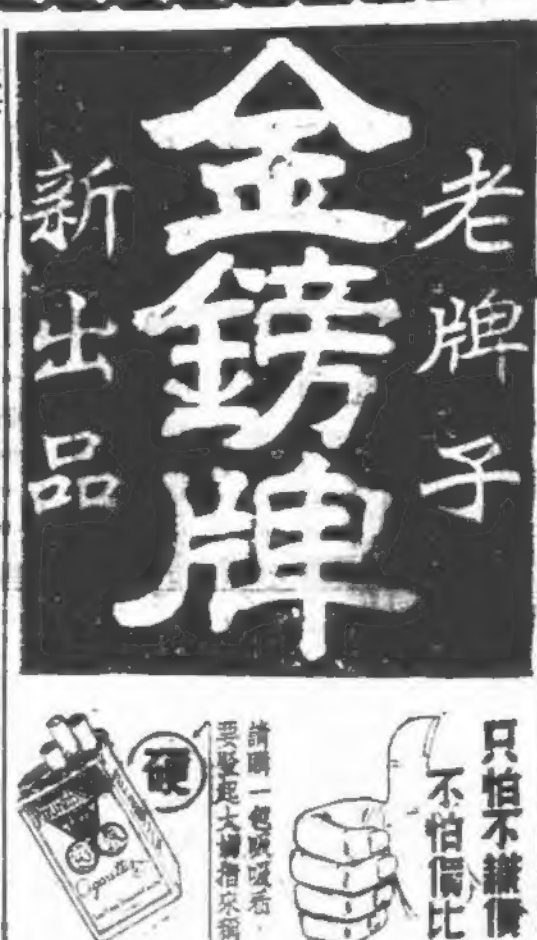 老牌子
金鎊牌
新出品
只怕不識貨
不怕價比
請購一包吸吸看,
要豎起大拇指來稱
硬
Cigarettes